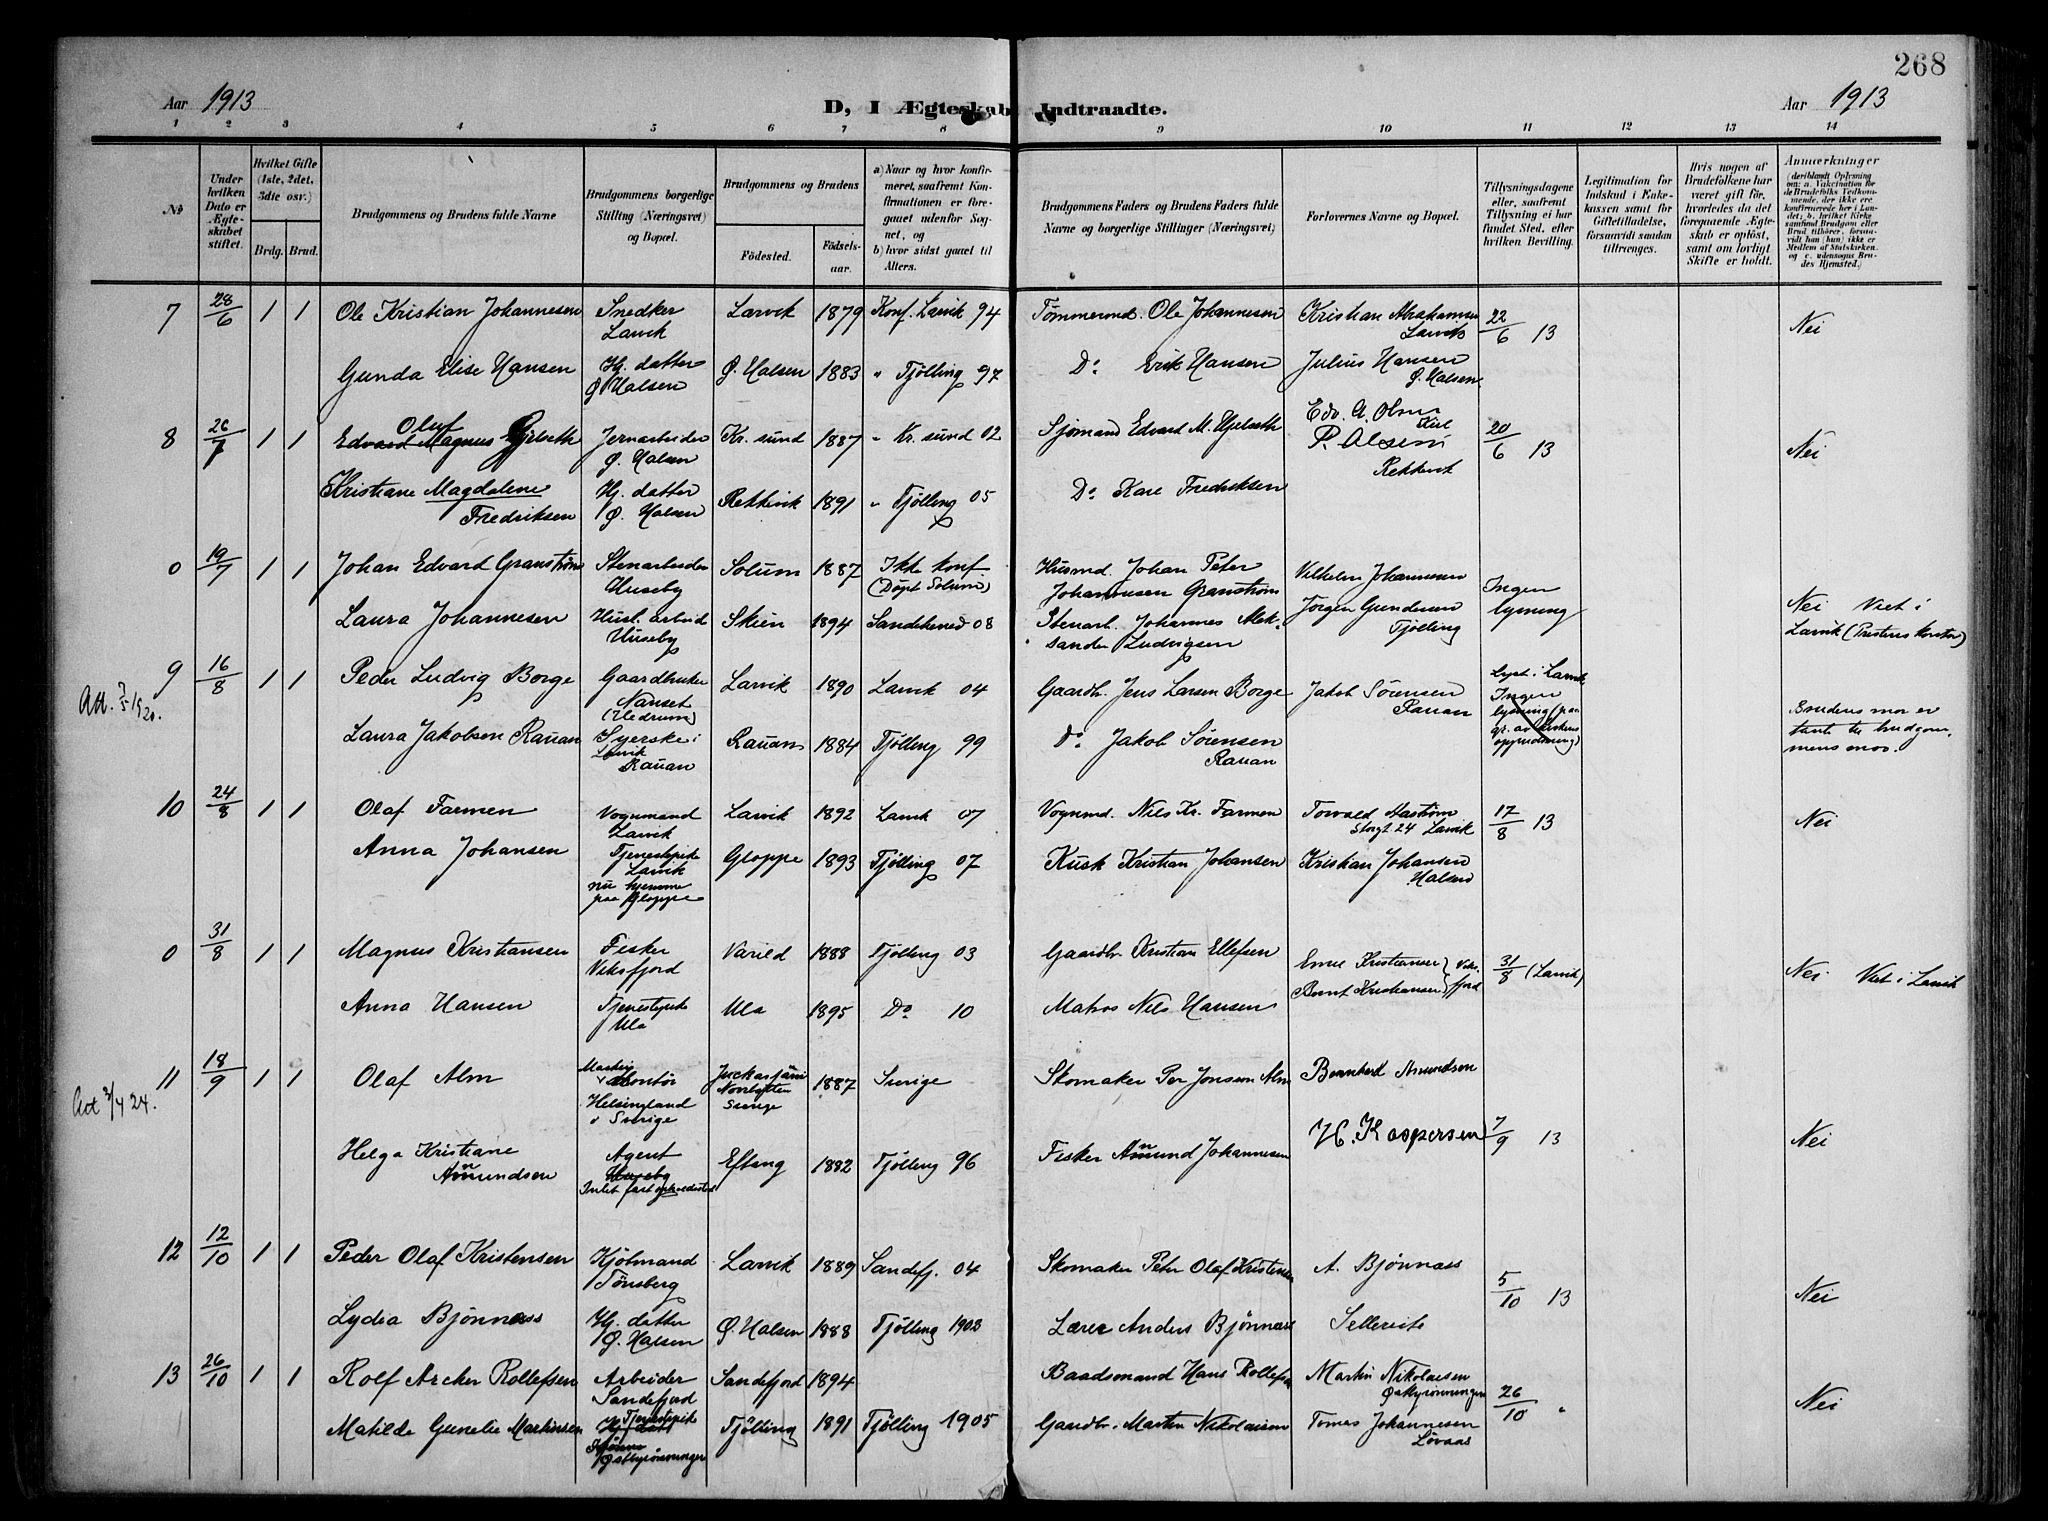 268
Aar 1913
D, I Ægteskab Indtraadte.
Aar 1913
1 2 3 4 5 6 7 8 9 10 11 12 13 14
No
Under hvilken Dato er Ægteskabet stiftet.
Hvilket Gifte (1ste, 2det, 3die osv.)
Brdg. Brud.
Brudgommens og Brudens fulde Navne
Brudgommens borgerlige Stilling (Næringsvei) og Bopæl.
Brudgommens og Brudens
Födested.
Födselsaar.
a) Naar og hvor konfirmeret, saafremt Konfirmationen er foregaaet udenfor Sognet, og
b) hvor sidst gaaet til Alters.
Brudgommens Faders og Brudens Faders fulde Navne og borgerlige Stillinger (Næringsvei)
Forlovernes Navne og Bopæl.
Tillysningsdagene eller, saafremt Tillysning ei har fundet Sted, efter hvilken Bevilling.
Legitimation for Indskud i Enkekassen samt for Giftetilladelse, forsaavidt saadan tiltrænges.
Hvis nogen af Brudefolkene har været gift før, hvorledes da det foregaaende Ægteskab er opløst, samt om lovligt Skifte er holdt.
Anmærkninger (deriblandt Oplysning om: a. Vakcination for de Brudefolks Vedkommende, der ikke ere konfirmerede her i Landet; b. hvilket Kirkesamfund Brudgom eller Brud tilhører, forsaavidt han (hun) ikke er Medlem af Statskirken, og c. udensogns Brudes Hjemsted.)
7 28/6 1 1 Ole Kristian Johannesen Snedker Larvik Larvik 1879 Konf. Larvik 94 Tømmermd. Ole Johannesen Kristian Abrahamsen Larvik 22/6 13 Nei
Gunda Elise Hansen Hj. datter Ø. Halsen Ø. Halsen 1883 " Tjølling 97 Do Erik Hansen Julius Hansen Ø. Halsen
8 26/7 1 1 Olaf Edvard Magnus Jernarbeider Ø. Halsen Kr. sund 1887 " Kr. sund 02 Sjømand Edvard M. Edv. A. Olsen 20/6 13 Nei
Kristiane Magdalene Fredriksen Hj. datter Ø. Halsen Rekkevik 1891 " Tjølling 05 Do Karl Fredriksen Rekkevik
0 19/7 1 1 Johan Edvard Granström Stenarbeider Huseby Solum 1887 Ikke konf (Døpt Solum) Husmd. Johan Peter Johannesen Granström Vilhelm Johannesen Ingen lysning
Laura Johannesen Husl. arbeid Huseby Skien 1894 Sandeherred 08 Stenarb. Johannes Aleksander Ludvigsen Jørgen Gundersen Tjølling Nei Viet i Larvik (Prestens kontor)
9 16/8 1 1 Peder Ludvig Borge Gaardbruker Nanset (Hedrum) Larvik 1890 Larvik 04 Gaardb. Jens Larsen Borge Jakob Sørensen Rauan Lyst i Larvik Ingen lysning (paa
Att. 7/5 1920.
Laura Jakobsen Rauan Syerske i Larvik Rauan Rauan 1884 Tjølling 99 Do Jakob Sørensen Rauan Brudens mor er tante til brudgommens mor.
10 24/8 1 1 Olaf Farmen Vognmand Larvik Larvik 1892 Larvik 07 Vognmd. Nils Kr. Farmen Torvald Haström Storgt 24 Larvik 17/8 13 Nei
Anna Johansen Tjenestepike Larvik nu hjemme paa Gloppe Gloppe 1893 Tjølling 07 Kusk Kristian Johansen Kristian Johansen Halsen
0 31/8 1 1 Magnus Kristiansen Fisker Viksfjord Varild 1888 Tjølling 03 Gaardbr. Kristian Ellefsen Emil Kristiansen 31/8 (Larvik) Nei Viet i Larvik
Anna Hansen Tjenestepike Ula Ula 1895 Do 10 Matros Nils Hansen Bernt Kristiansen Viksfjord
11 18/9 1 1 Olaf Alm Montör Helsingland i Sverige Norrbotten Sverige 1887 Sverige Skomaker Per Jonsen Alm Bernhard Amundsen
Att 2/4 24.
Helga Kristiane Amundsen Agent Huseby Intet fast opholdssted Eftang 1882 Tjølling 96 Fisker Amund Johannesen H. Kaspersen 7/9 13 Nei
12 12/10 1 1 Peder Olaf Kristensen Kjøbmand Tönsberg Larvik 1889 Sandefj. 04 Skomaker Peter Olaf Kristensen A. Bjønnæss 5/10 13 Nei
Lydia Bjønnæss Hj. datter Ø. Halsen Ø. Halsen 1888 Tjølling 1903 Lærer Anders Bjønnæss
13 26/10 1 1 Rolf Archer Rollefsen Arbeider Sandefjord Sandefjord 1894 Baadsmand Hans Rollefsen Martin Nikolaisen 26/10 " Nei
Matilde Gunelie Martinsen Tjenestepike Tjølling 1891 Tjølling 1905 Gaardbr. Martin Nikolaisen Tomas Johannesen Løvaas